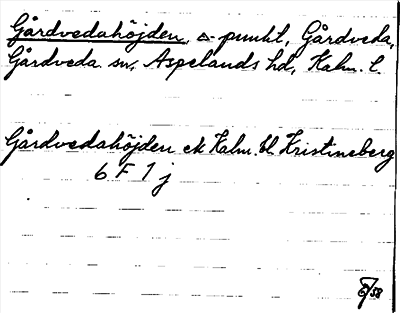 Gårdvedahöjden, △-punkt, Gårdveda,
Gårdveda sn, Aspelands hd, Kalm. l.
Gårdvedahöjden ek Kalm. bl Kristineberg
6 F 1 j
/58